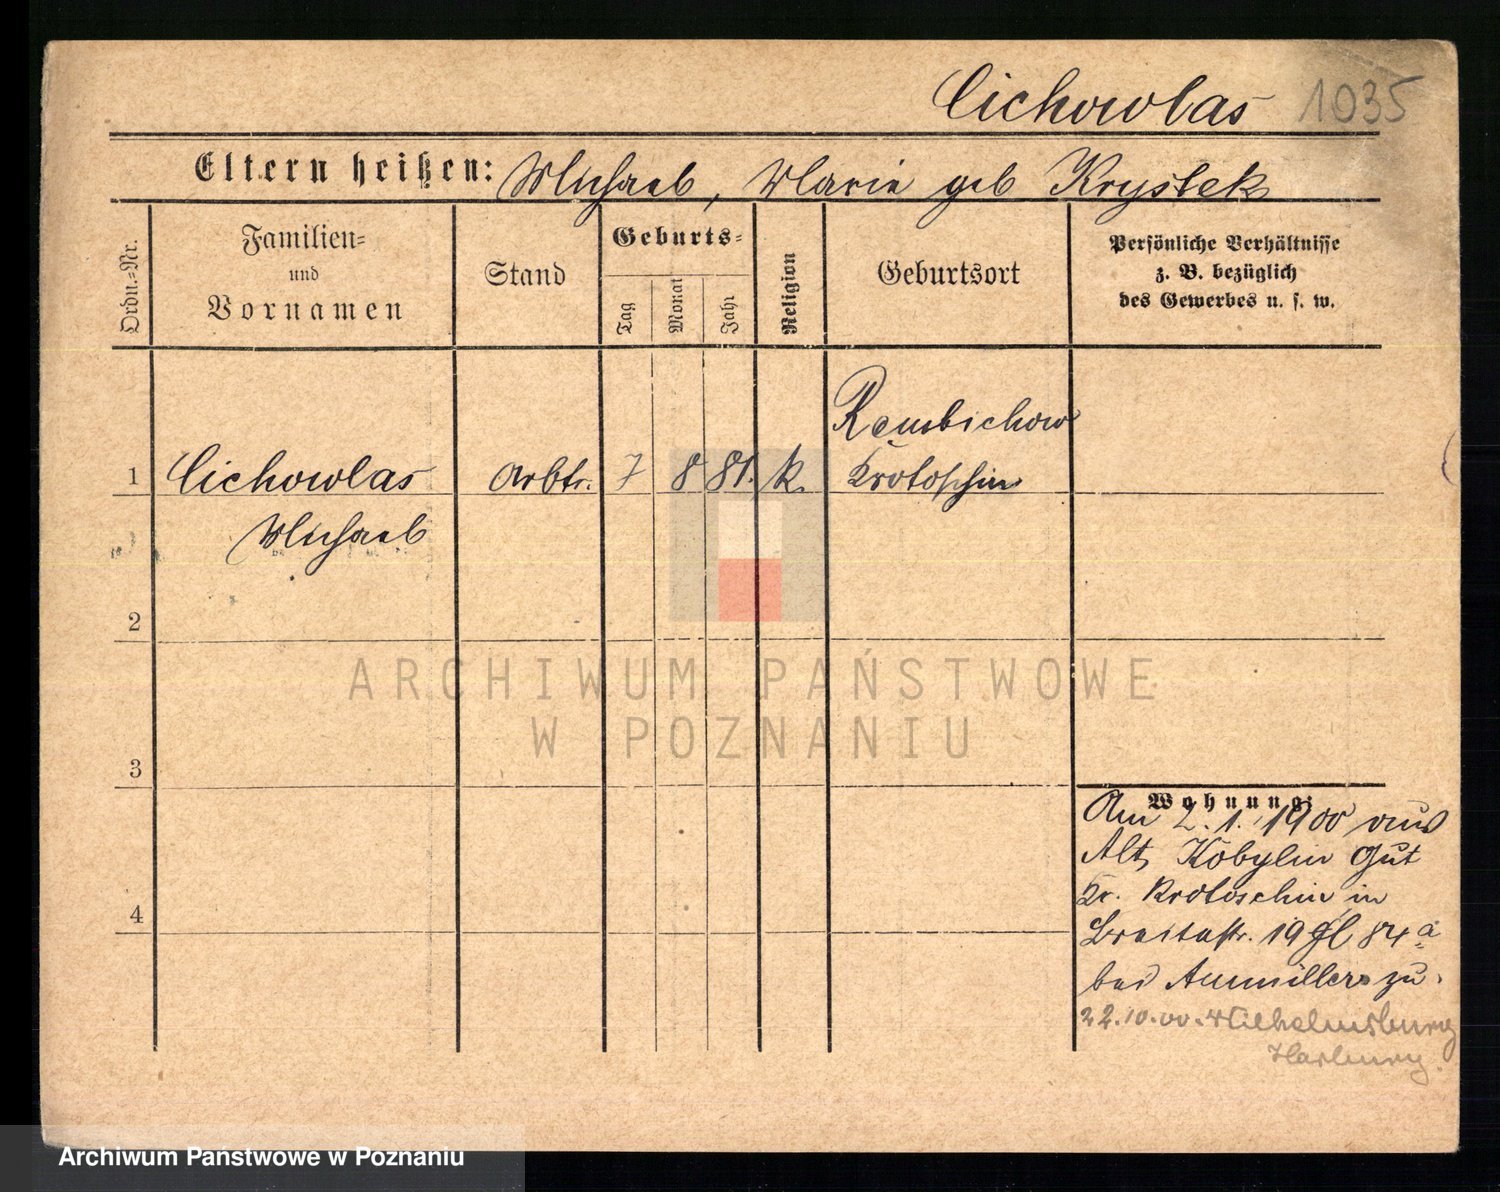 Cichowlas 1035
Eltern heißen: Michael, Marie geb Krystek
Ordn.=Nr.
Familien=
und
Vornamen
Stand
Geburts=
Tag
Monat
Jahr
Religion
Geburtsort
Persönliche Verhältnisse
z. B. bezüglich
des Gewerbes u. s. w.
Rembichow
1 Cichowlas Arbtr. 7 8 81. k. Krotoschin
Michael
2
ARCHIWUM PAŃSTWOWE
W POZNANIU
3
Wohnung:
Am 2. 1. 1900 aus
Alt Kobylin Gut
4 Kr. Krotoschin in
Breitestr. 19 Gl 84 a
bei zu.
22.10.00. Wilhelmsburg
Harburg.
Archiwum Państwowe w Poznaniu